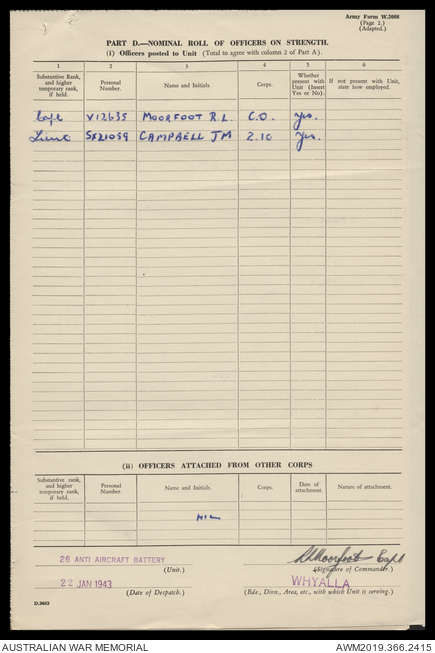 Army Form W.3008
(Page 2.)
(Adapted.)
PART D.—NOMINAL ROLL OF OFFICERS ON STRENGTH.
(i) Officers posted to Unit (Total to agree with column 2 of Part A).
1 2 3 4 5 6
Substantive Rank, and higher temporary rank, if held. Personal Number. Name and Initials. Corps. Whether present with Unit (Insert Yes or No). If not present with Unit, state how employed.
Capt V12635 MOORFOOT R.L. C.O. Yes.
Lieut SX21059 CAMPBELL JM 2.10 Yes.
(ii) OFFICERS ATTACHED FROM OTHER CORPS
Substantive rank, and higher temporary rank, if held. Personal Number. Name and Initials. Corps. Date of attachment. Nature of attachment.
NIL
26 ANTI AIRCRAFT BATTERY RLMoorfoot Capt
(Unit.) (Signature of Commander.)
22 JAN 1943 WHYALLA
(Date of Despatch.) (Bde., Divn., Area, etc., with which Unit is serving.)
D.2603
AUSTRALIAN WAR MEMORIAL AWM2019.366.2415